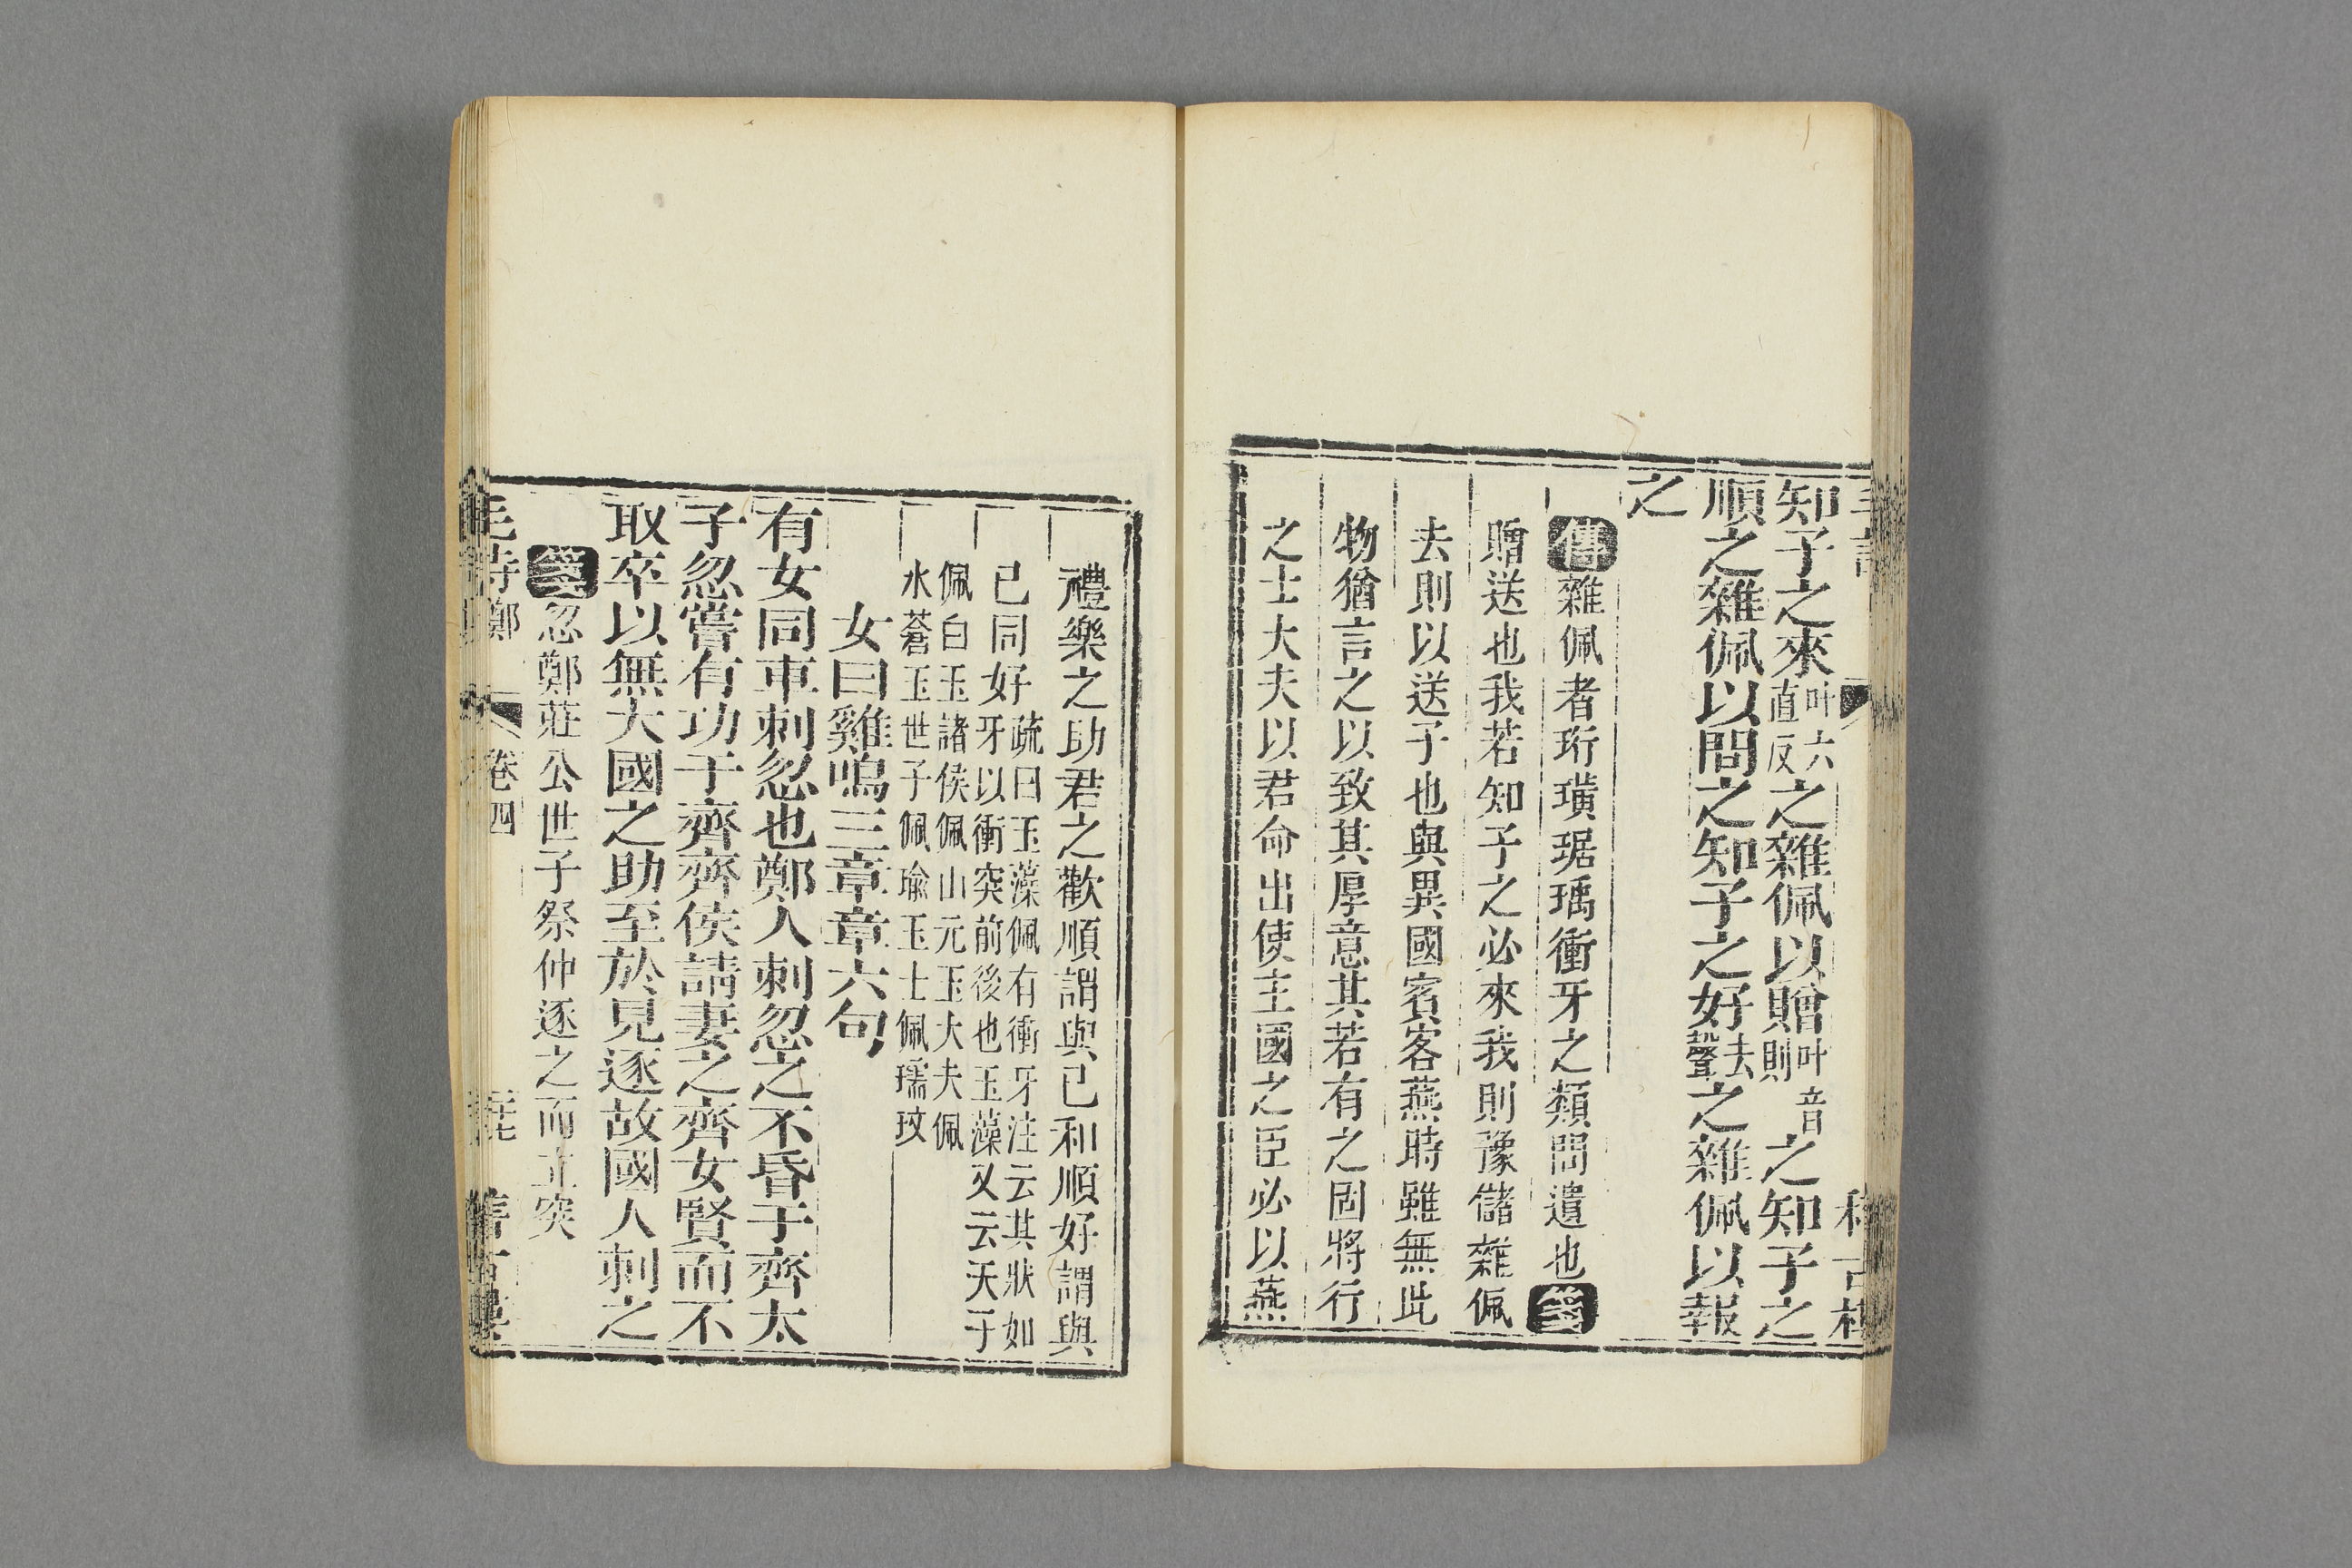 知子之來叶六直反之雜佩以贈叶音則之知子之
順之雜佩以問之知子之好去聲之雜佩以報
之
傳雜佩者珩璜琚瑀衝牙之類問遺也箋
贈送也我若知子之必來我則豫儲雜佩
去則以送子也與異國賓客燕時雖無此
物猶言之以致其厚意其若有之固將行
之士大夫以君命出使主國之臣必以燕
禮樂之助君之歡順謂與已和順好謂與
已同好疏曰玉藻佩有衝牙注云其狀如
牙以衝突前後也玉藻又云天子
佩白玉諸侯佩山元玉大夫佩
水蒼玉世子佩瑜玉士佩瓀玟
女曰雞鳴三章章六句
有女同車刺忽也鄭人刺忽之不昏于齊太
子忽嘗有功于齊齊侯請妻之齊女賢而不
取卒以無大國之助至於見逐故國人刺之
箋忽鄭莊公世子祭仲逐之而立突
毛詩鄭 卷四